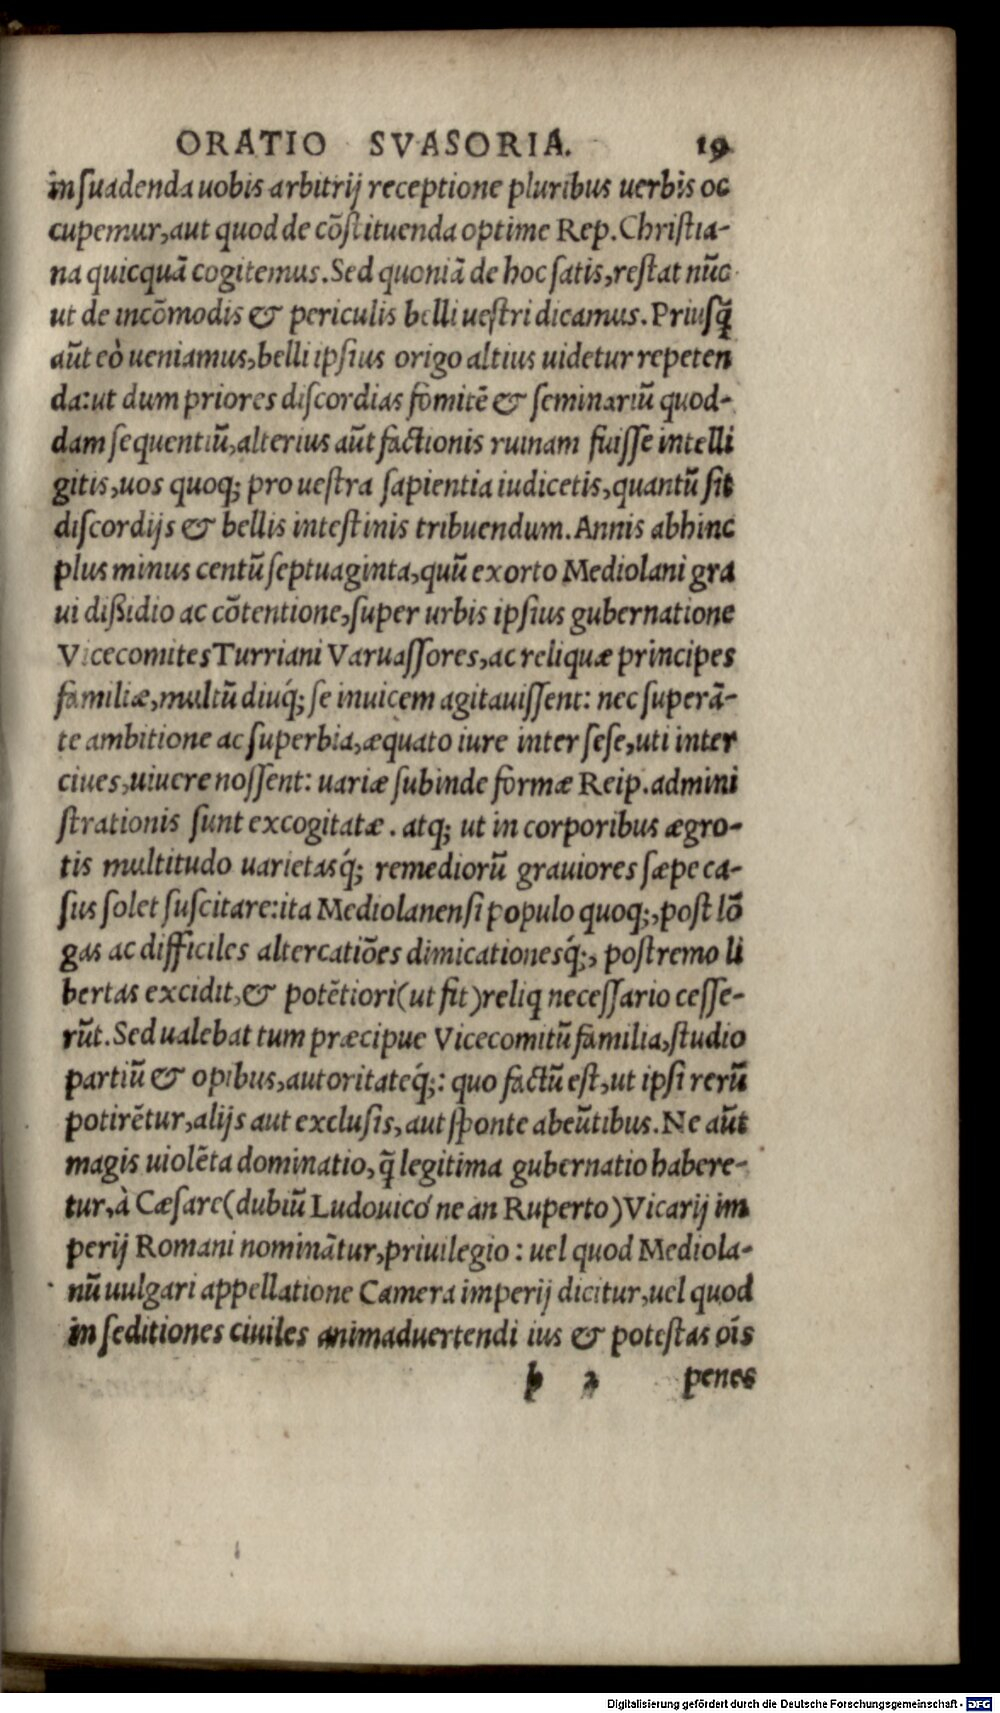 ORATIO SVASORIA. 19
in suadenda uobis arbitrij receptione pluribus uerbis oc
cupemur, aut quod de cōstituenda optime Rep. Christia-
na quicquā cogitemus. Sed quoniā de hoc satis, restat nūc
ut de incōmodis & periculis belli uestri dicamus. Priusq̄
aūt eò ueniamus, belli ipsius origo altius uidetur repeten
da: ut dum priores discordias fomitē & seminariū quod-
dam sequentiū, alterius aūt factionis ruinam fuisse intelli
gitis, uos quoq; pro uestra sapientia iudicetis, quantū sit
discordijs & bellis intestinis tribuendum. Annis abhinc
plus minus centū septuaginta, quū exorto Mediolani gra
ui dißidio ac cōtentione, super urbis ipsius gubernatione
Vicecomites Turriani Varuassores, ac reliquæ principes
familiæ, multū diuq́; se inuicem agitauissent: nec superā-
te ambitione ac superbia, æquato iure inter sese, uti inter
ciues, uiuere nossent: uariæ subinde formæ Reip. admini
strationis sunt excogitatæ. atq; ut in corporibus ægro-
tis multitudo uarietasq́; remediorū grauiores sæpe ca-
sus solet suscitare: ita Mediolanensi populo quoq;, post lō
gas ac difficiles altercatiōes dimicationesq́;, postremo li
bertas excidit, & potētiori (ut fit) reliq necessario cesse-
rūt. Sed ualebat tum præcipue Vicecomitū familia, studio
partiū & opibus, autoritateq́;: quo factū est, ut ipsi rerū
potirētur, alijs aut exclusis, aut sponte abeūtibus. Ne aūt
magis uiolēta dominatio, q̄ legitima gubernatio habere-
tur, à Cæsare (dubiū Ludouicó ne an Ruperto) Vicarij im
perij Romani nominātur, priuilegio: uel quod Mediola-
nū uulgari appellatione Camera imperij dicitur, uel quod
in seditiones ciuiles animaduertendi ius & potestas oīs
b 2 penes
Digitalisierung gefördert durch die Deutsche Forschungsgemeinschaft - DFG